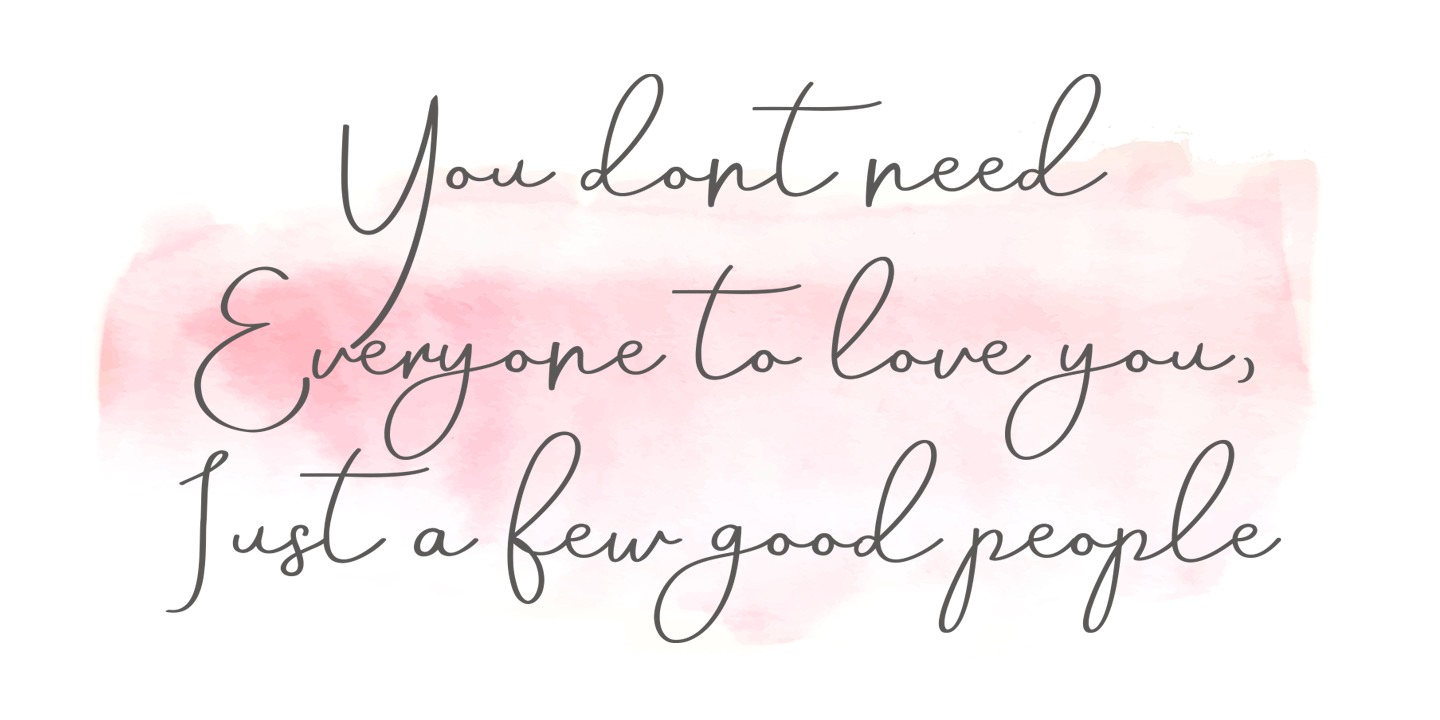 You dont need
Everyone to love you,
Just a few good people